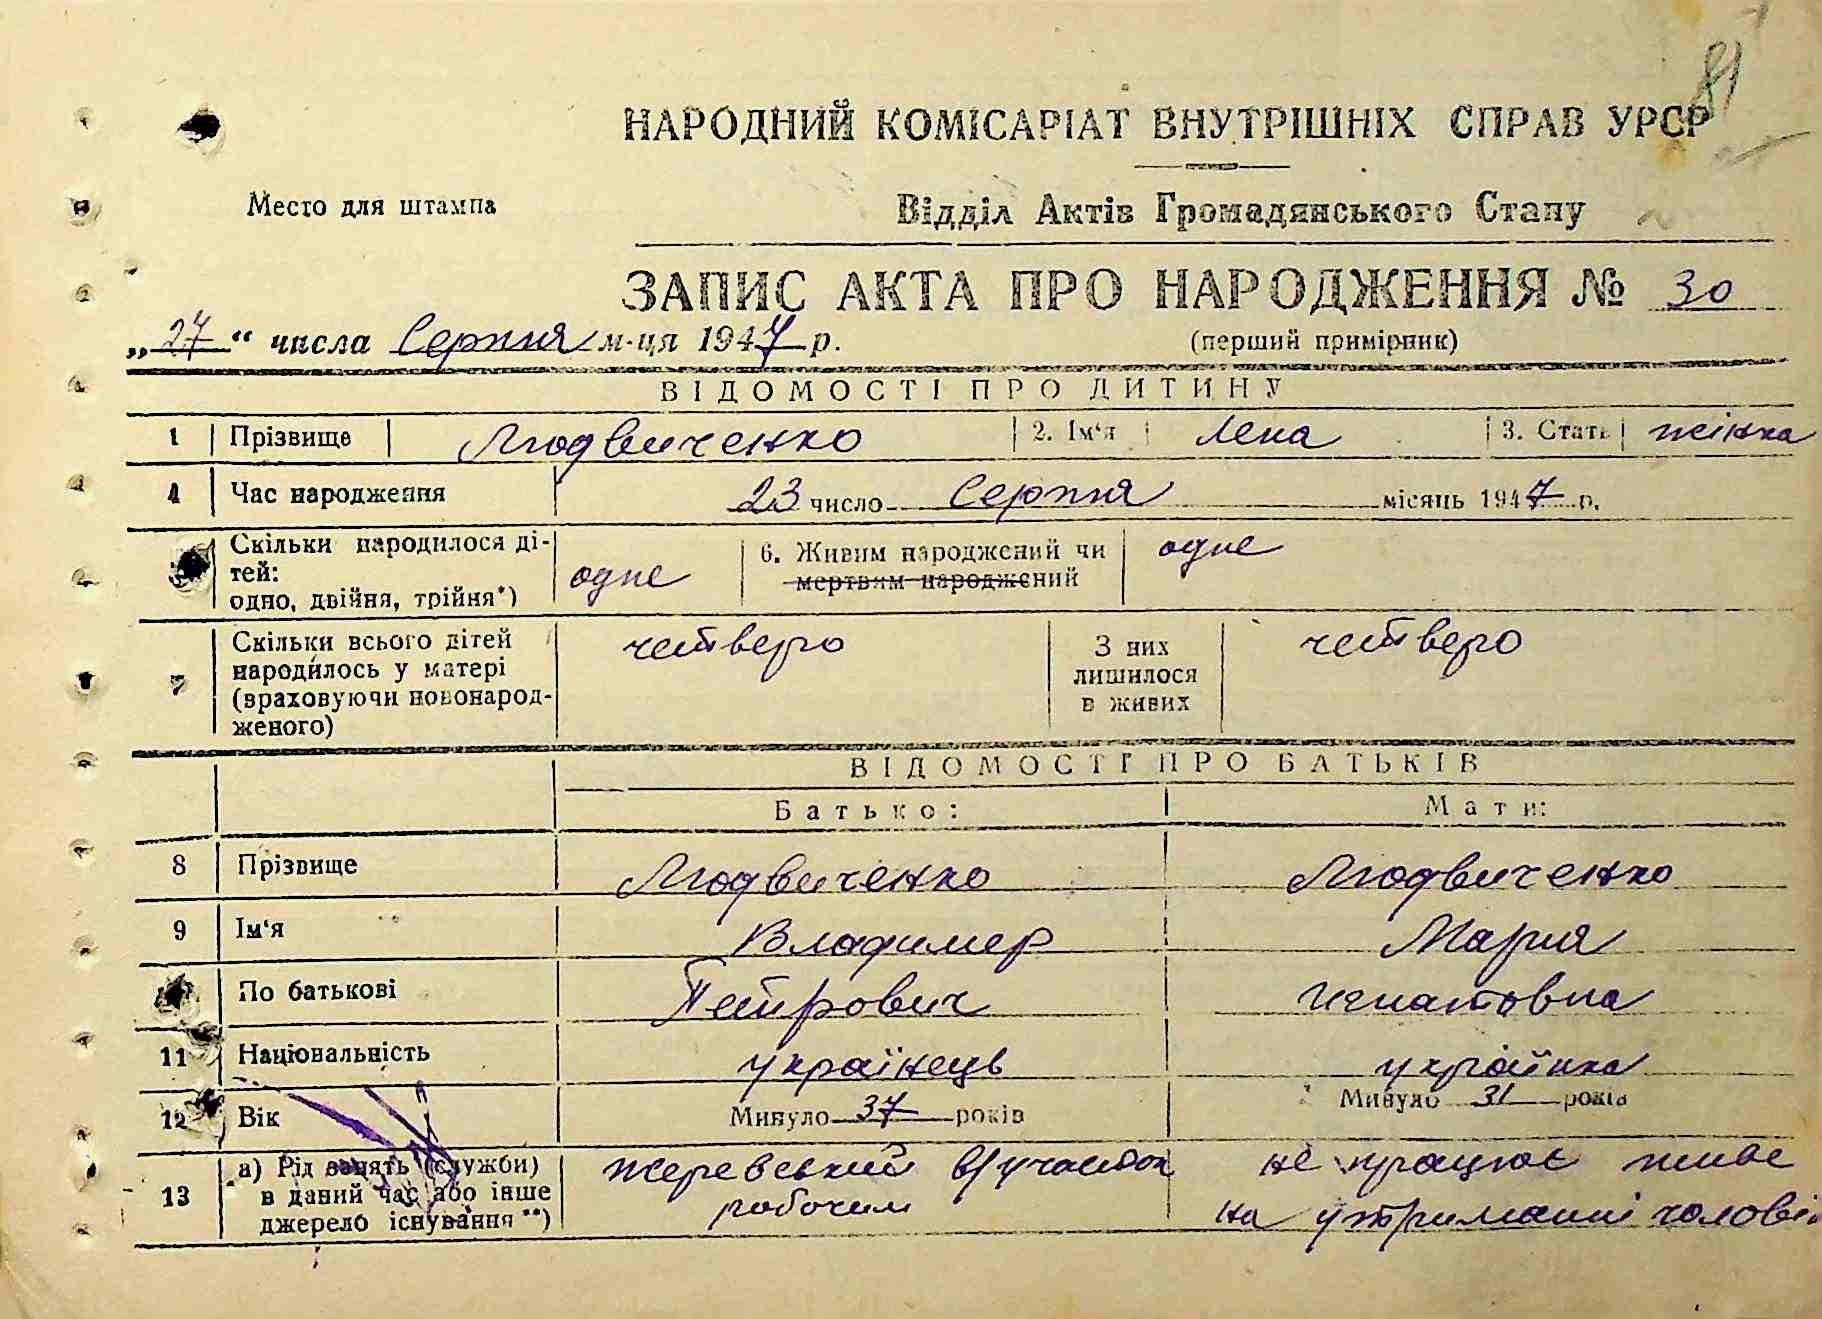 81
НАРОДНИЙ КОМІСАРІАТ ВНУТРІШНІХ СПРАВ УРСР
Место для штампа
Відділ Актів Громадянського Стану
ЗАПИС АКТА ПРО НАРОДЖЕННЯ № 30
„27" числа Серпня м-ця 1947 р.
(перший примірник)
ВІДОМОСТІ ПРО ДИТИНУ
1 Прізвище Людвиченко 2. Ім'я Лена 3. Стать жінка
4 Час народження 23 число Серпня місяць 1947 р.
Скільки народилося ді-
тей:
одно, двійня, трійня*) одне 6. Живим народжений чи
мертвим народжений одне
7 Скільки всього дітей
народилось у матері
(враховуючи новонарод-
женого) четверо З них
лишилося
в живих четверо
ВІДОМОСТІ ПРО БАТЬКІВ
Батько: Мати:
8 Прізвище Людвиченко Людвиченко
9 Ім'я Владимер Мария
По батькові Петрович Игнатовна
11 Національність українець українка
12 Вік Минуло 37 років Минуло 31 років
13 а) Рід занять (служби)
в даний час або інше
джерело існування**) жеревський в/участок
робочим не працює живе
на утриманні чоловік